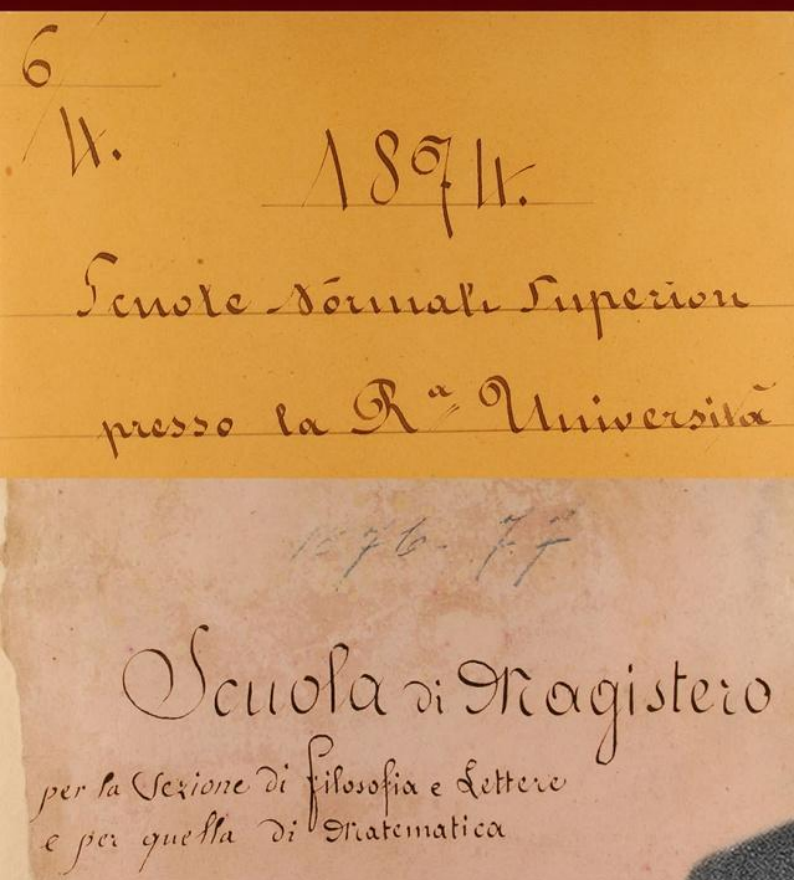 6
4.
1874.
Scuole Normali Superiori
presso la Rª Università
1876-77
Scuola di Magistero
per la Sezione di Filosofia e Lettere
e per quella di Matematica